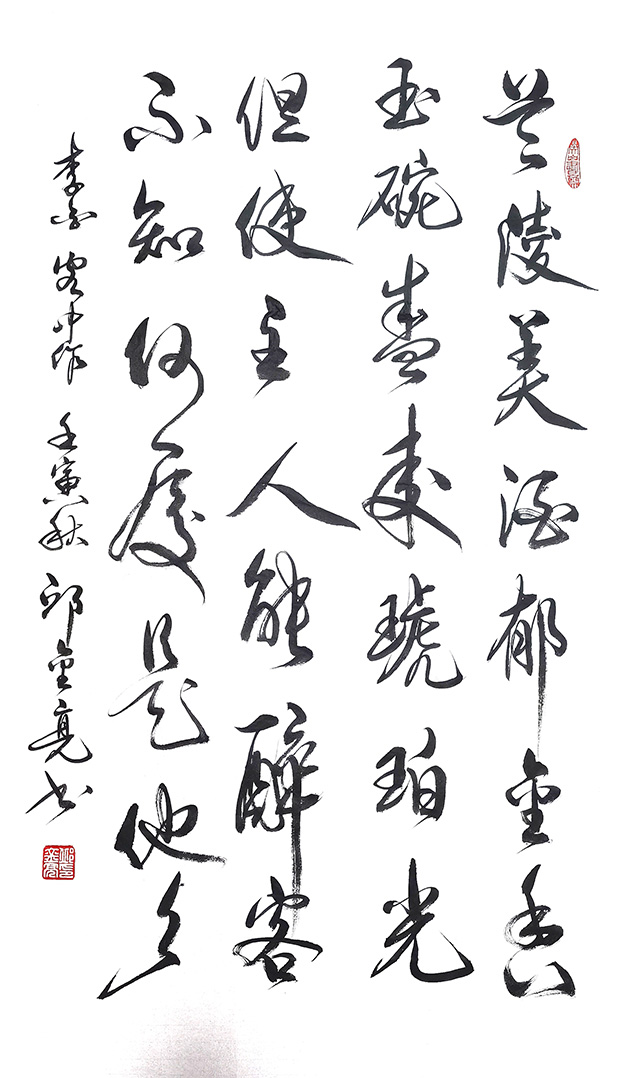 兰陵美酒郁金香
玉碗盛来琥珀光
但使主人能醉客
不知何处是他乡
李白 客中作 壬寅秋 邱金亮书